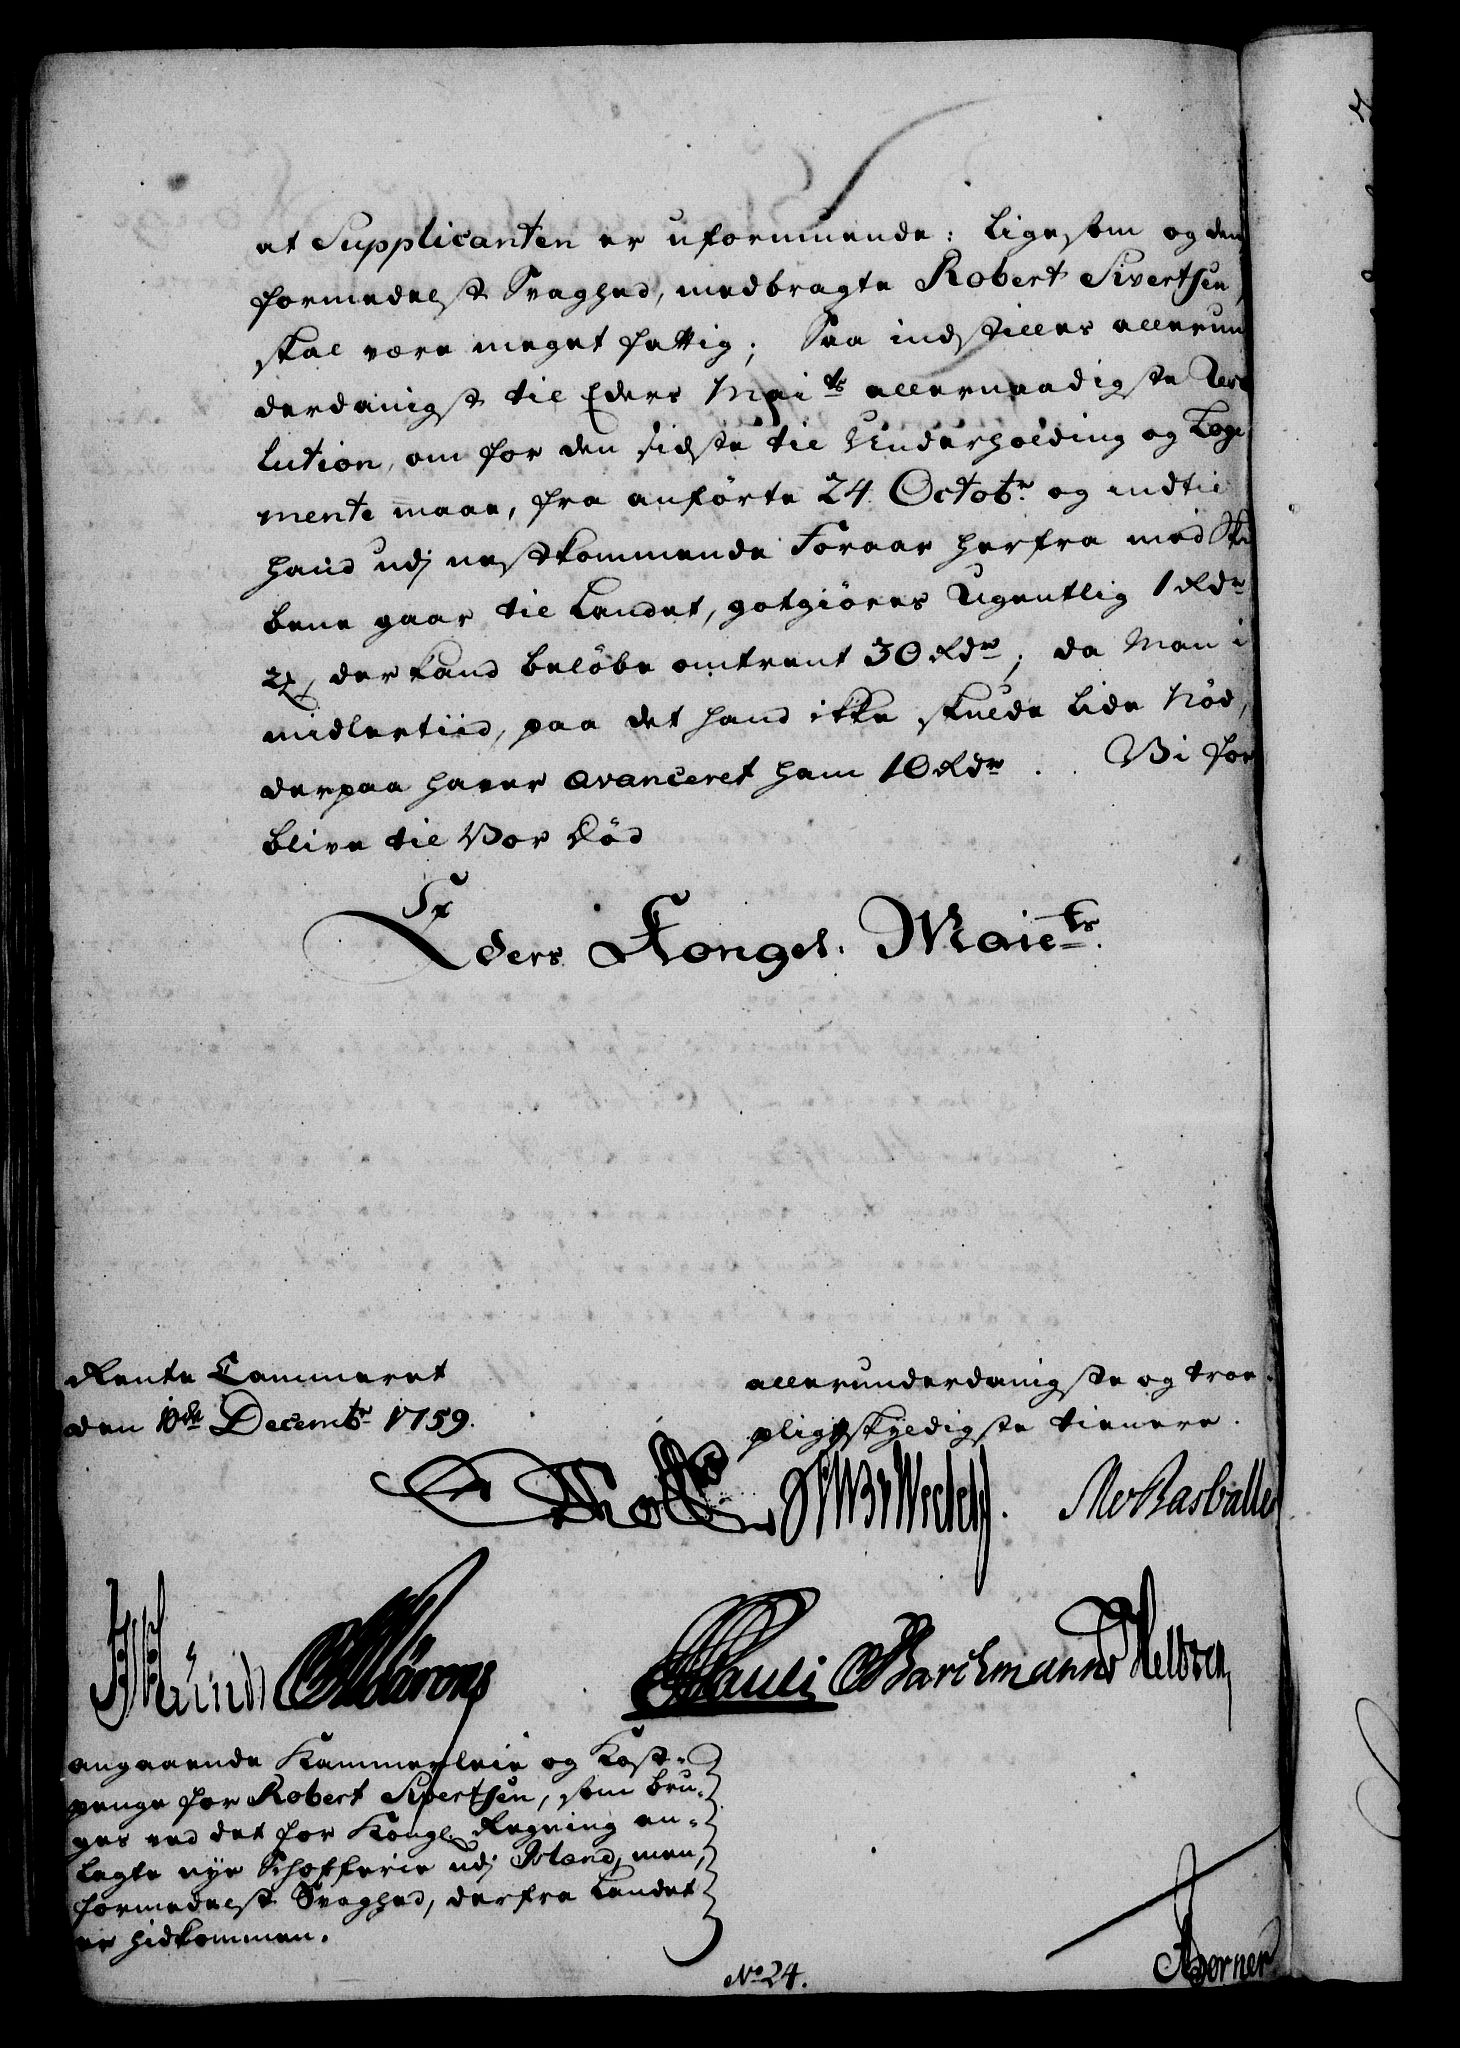 at Supplicanten er uformuende: ligesom og den
formedelst Svaghed, medbragte Robert Sivertsen,
skal være meget fattig; Saa indstilles allerun
derdanigst til Eders Maits allernaadigste Reso
lution, om for den sidste til Underholding og Loge
mente maae, fra anførte 24 Octobr. og indtil
hand udj nestkommende Foraar herfra med Ski
bene gaar til Landet, gotgiøres Ugentlig 1 Rdr
2 der kand beløbe omtrent 30 Rdr; da Man i
midlertiid, paa det hand ikke skulde lide Nød,
derpaa haver avanceret ham 10 Rdr. Vi for
blive til Vor Død
Eders Kongel. Maiets.
Rente Cammeret
den 18de Decembr 1759.
allerunderdanigste og troe
pligtskyldigste tienere.
Holst
Barchmann
Pauli
angaaende Kammerleie og Kost-
penge for Robert Sivertsen, som bru-
ges ved det for Kongl. Regning an-
lagte nye Schæfferie udj Island, men,
formedelst Svaghed, derfra Landet
er hidkommen.
No 24.